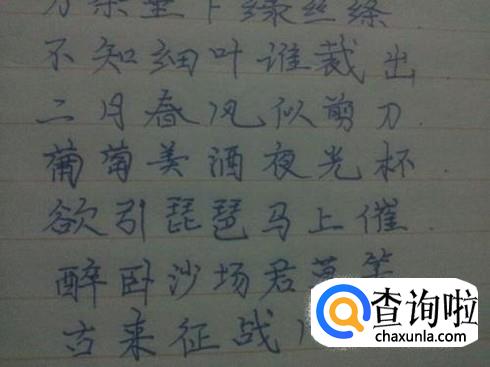 万条垂下绿丝绦
不知细叶谁裁出
二月春风似剪刀.
葡萄美酒夜光杯.
欲引琵琶马上催.
醉卧沙场君莫笑
古来征战
查询啦
chaxunla.com